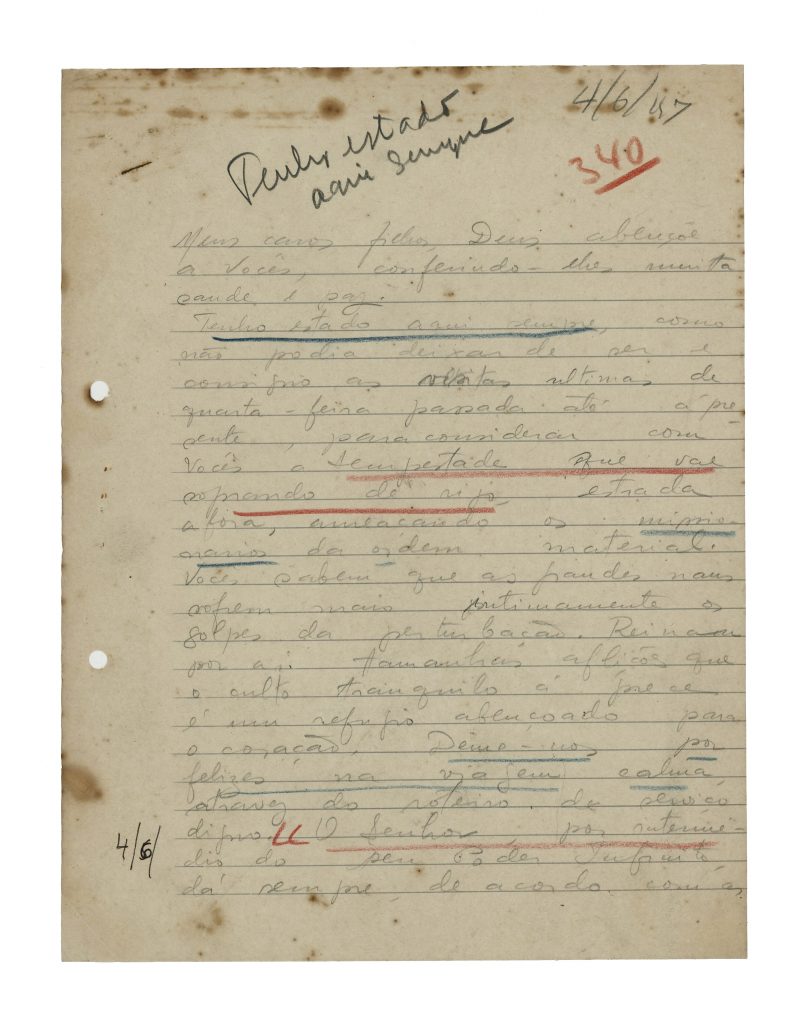 4/6/47
340
Tenho estado
aqui sempre
Meus caros filhos, Deus abençõe
a Vocês, conferindo-lhes muita
saude e paz.
Tenho estado aqui sempre, como
não podia deixar de ser e
consigno as visitas ultimas de
quarta-feira passada até á pre
sente, para considerar com
Vocês a tempestade que vae
soprando de rijo estrada
a fóra, ameaçando os missio-
narios da ordem material.
Vocês sabem que as grandes naus
sofrem mais intimamente os
golpes da perturbação. Reinam
por aí tamanhas aflições que
o culto tranquilo á prece
é um refugio abençoado para
o coração. Dême-nos por
felizes na viajem calma
atravez do roteiro de serviço
digno. O Senhor por interme-
dio do seu Poder Infinito
dá sempre, de acordo com as
4/6/